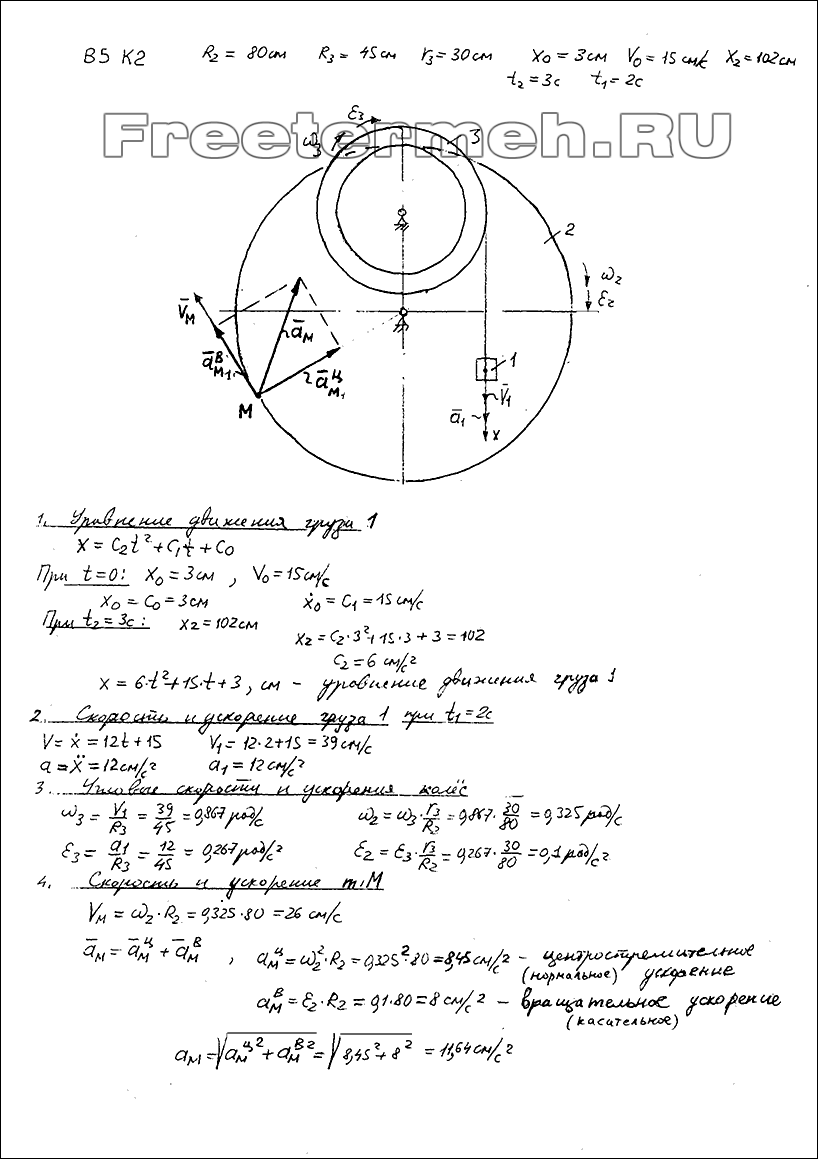 В5 К2 R₂ = 80см R₃ = 45см r₃ = 30см x₀ = 3см V₀ = 15 см/с x₂ = 102см
t₂ = 3с t₁ = 2с
Freetermeh.RU
ε₃
ω₃
3
2
ω₂
ε₂
V̄м
āм
āᴮм₁
āᶣм₁
М
1
V̄₁
ā₁
x
1. Уравнение движения груза 1
x = C₂t² + C₁t + C₀
При t=0: x₀ = 3см , V₀ = 15см/с
x₀ = C₀ = 3см ẋ₀ = C₁ = 15 см/с
При t₂ = 3с: x₂ = 102см
x₂ = C₂·3² + 15·3 + 3 = 102
C₂ = 6 см/с²
x = 6·t² + 15·t + 3, см – уравнение движения груза 1
2. Скорость и ускорение груза 1 при t₁ = 2с
V = ẋ = 12t + 15 V₁ = 12·2 + 15 = 39 см/с
a = ẍ = 12см/с² a₁ = 12 см/с²
3. Угловые скорости и ускорения колёс
ω₃ = V₁/R₃ = 39/45 = 0,867 рад/с ω₂ = ω₃·r₃/R₂ = 0,867·30/80 = 0,325 рад/с
ε₃ = a₁/R₃ = 12/45 = 0,267 рад/с² ε₂ = ε₃·r₃/R₂ = 0,267·30/80 = 0,1 рад/с²
4. Скорость и ускорение т.М
Vм = ω₂·R₂ = 0,325·80 = 26 см/с
āм = āмᶣ + āмᴮ , aмᶣ = ω₂²·R₂ = 0,325²·80 = 8,45 см/с² – центростремительное
(нормальное) ускорение
aмᴮ = ε₂·R₂ = 0,1·80 = 8 см/с² – вращательное ускорение
(касательное)
aм = √(aмᶣ² + aмᴮ²) = √(8,45² + 8²) = 11,64 см/с²